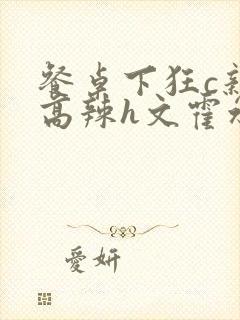 餐桌下狂c
高辣h文霍
愛妍